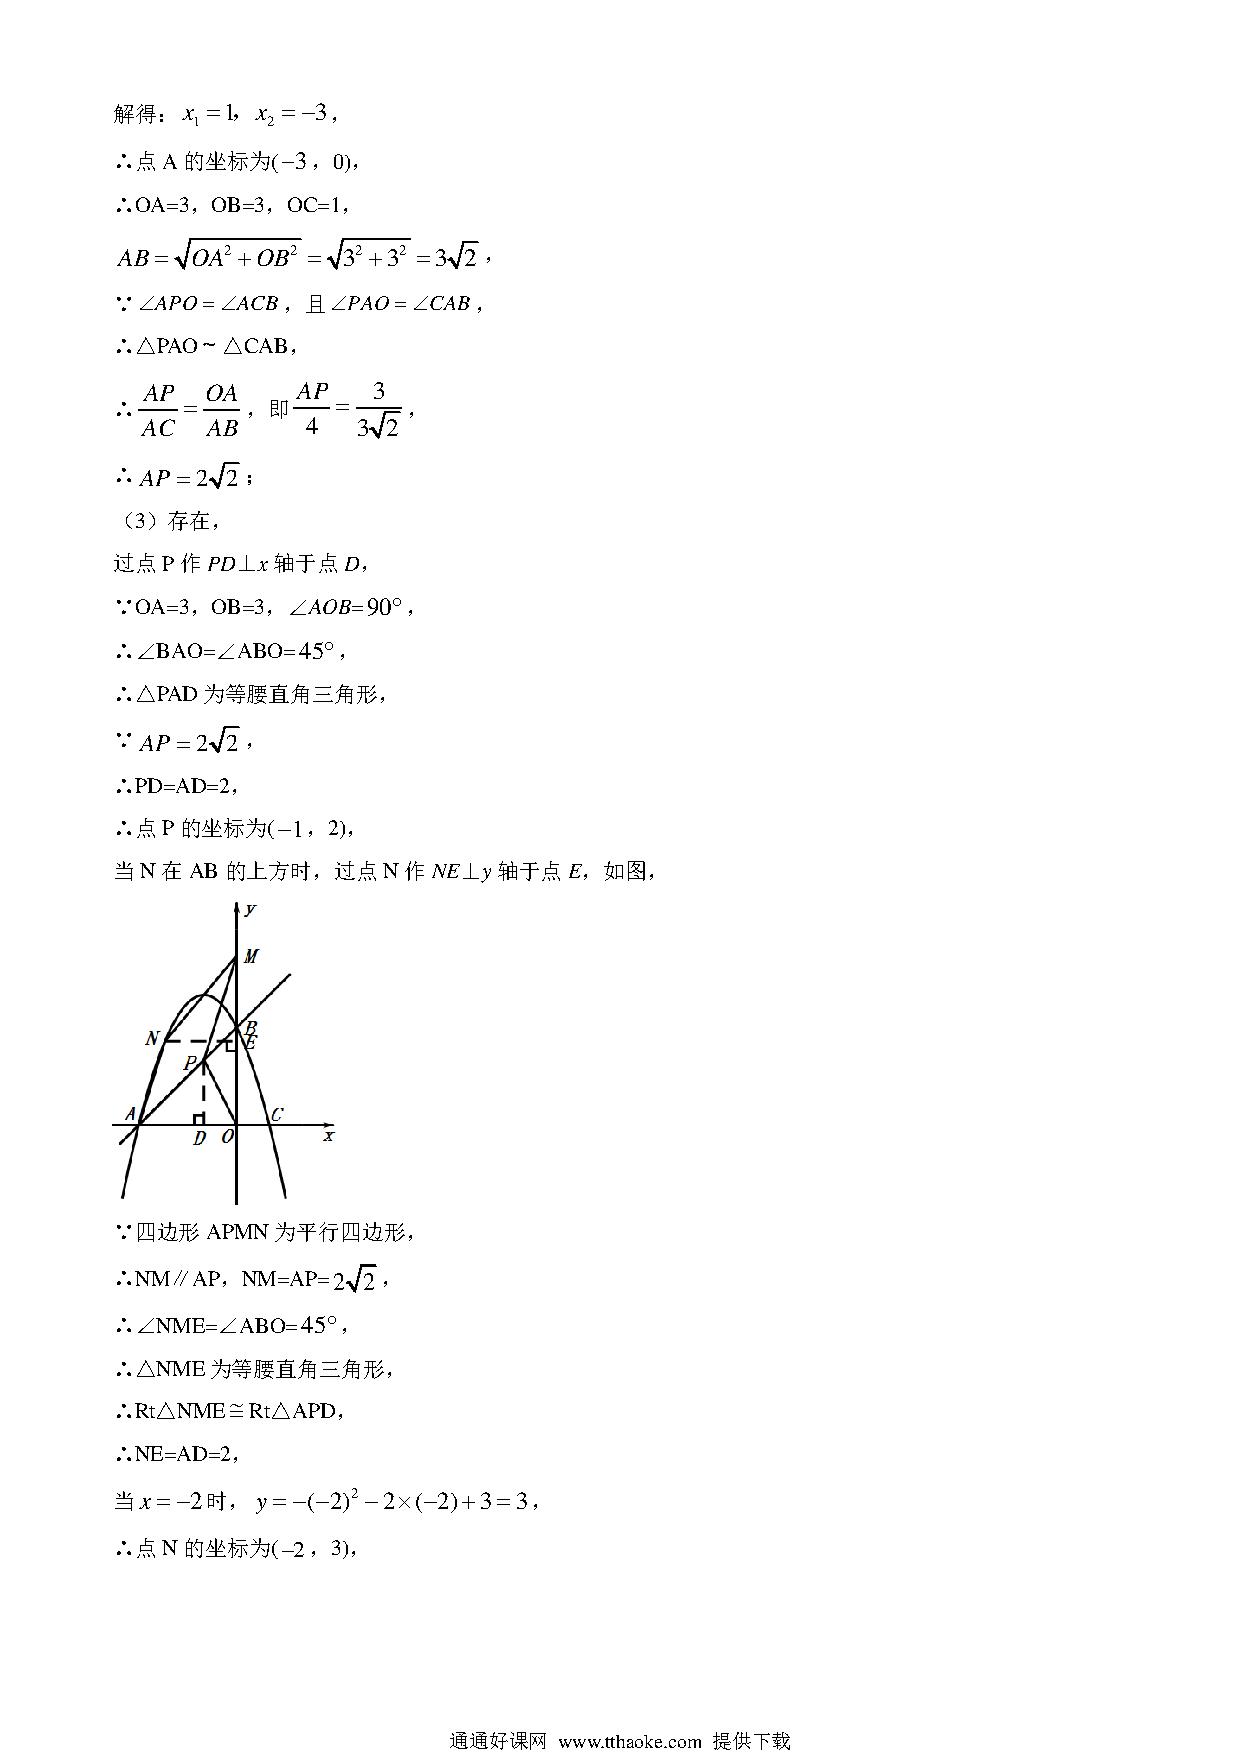 解得：x₁=1，x₂=−3，
∴点 A 的坐标为(−3，0)，
∴OA=3，OB=3，OC=1，
AB=√(OA²+OB²)=√(3²+3²)=3√2，
∵∠APO=∠ACB，且∠PAO=∠CAB，
∴△PAO ~ △CAB，
∴AP/AC=OA/AB，即AP/4=3/(3√2)，
∴AP=2√2；
（3）存在，
过点 P 作 PD⊥x 轴于点 D，
∵OA=3，OB=3，∠AOB=90°，
∴∠BAO=∠ABO=45°，
∴△PAD 为等腰直角三角形，
∵AP=2√2，
∴PD=AD=2，
∴点 P 的坐标为(−1，2)，
当 N 在 AB 的上方时，过点 N 作 NE⊥y 轴于点 E，如图，
y
M
B
N E
P
A C
D O x
∵四边形 APMN 为平行四边形，
∴NM∥AP，NM=AP=2√2，
∴∠NME=∠ABO=45°，
∴△NME 为等腰直角三角形，
∴Rt△NME≅Rt△APD，
∴NE=AD=2，
当x=−2时，y=−(−2)²−2×(−2)+3=3，
∴点 N 的坐标为(−2，3)，
通通好课网 www.tthaoke.com 提供下载